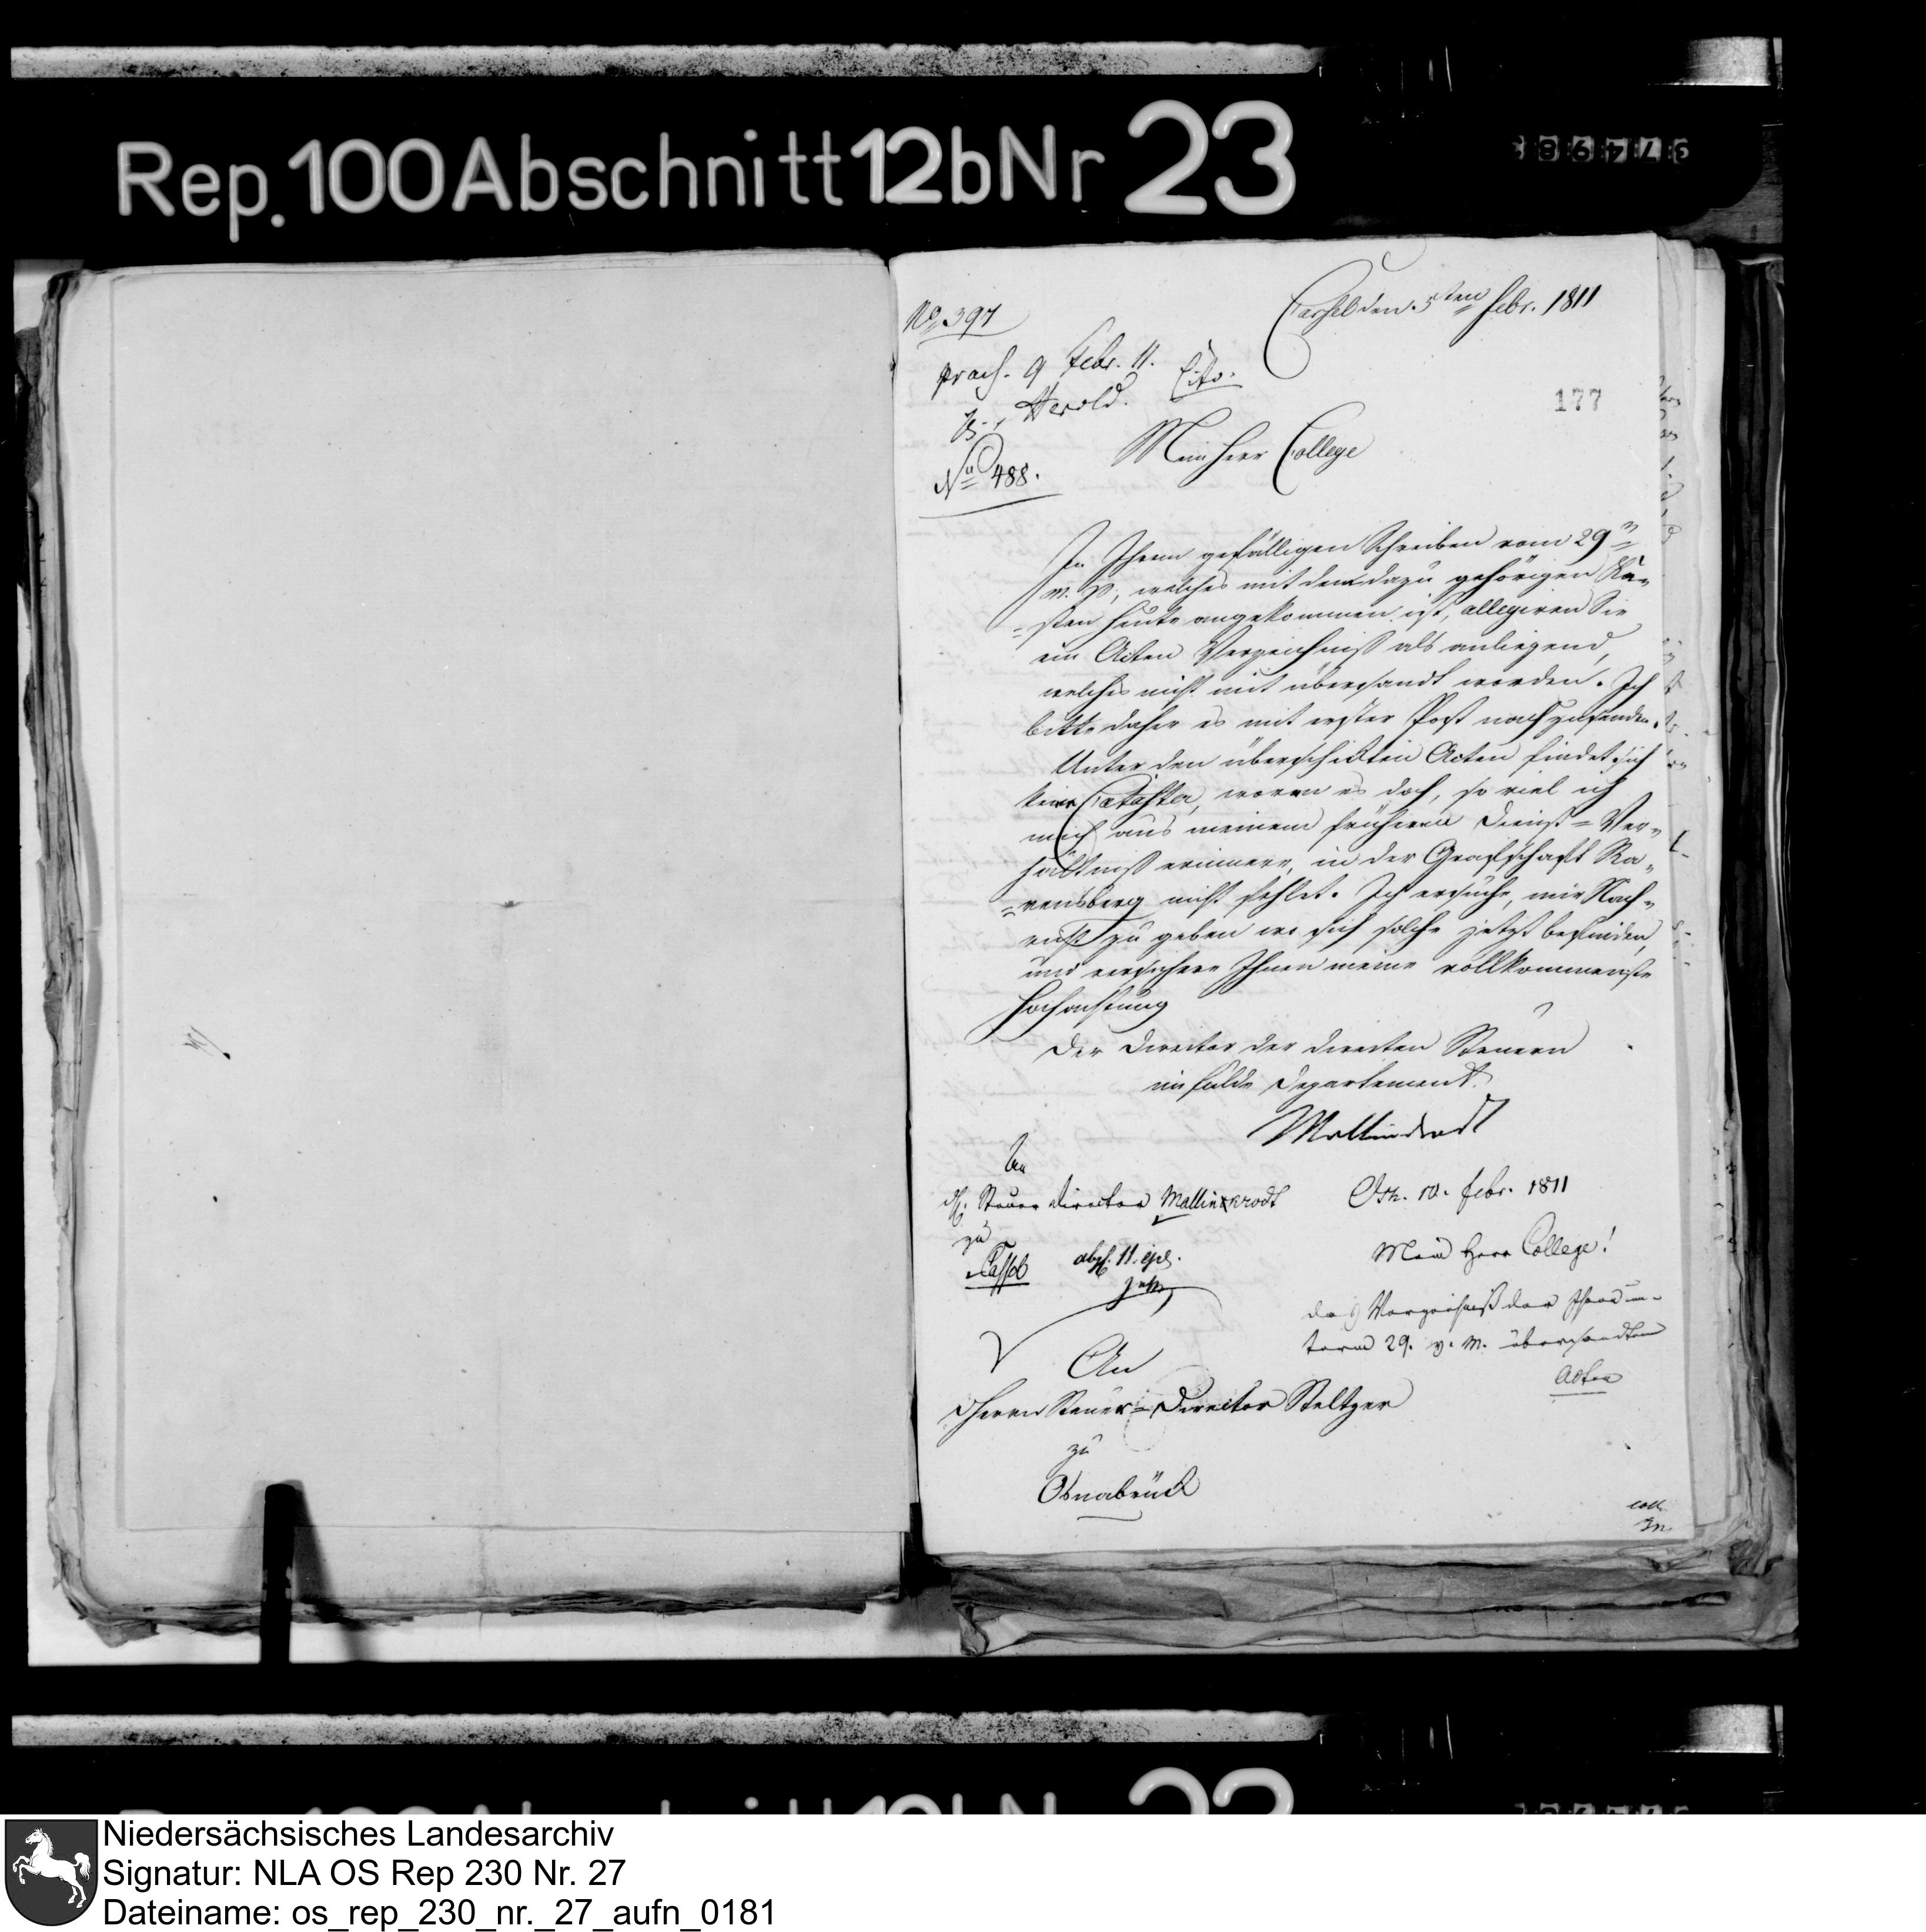 Rep. 100 Abschnitt 12b Nr 23
No. 397
Cassel den 5ten Febr. 1811
praes. 9 Febr. 11.
Cito.
Herold.
177
No 488.
Mein Herr College
In Ihrem gefälligen Schreiben vom 29ten
v. M, welches mit den dazu gehörigen Ka-
=sten heute angekommen ist, allegiren Sie
ein Acten Verzeichniß als anliegend,
welches nicht mit übersandt worden. Ich
bitte daher es mit erster Post nachzusenden.
Unter den überschickten Acten findet sich
kein Cataster, woran es doch, so viel ich
mich aus meinem früheren Dienst=Ver-
hältniß erinnere, in der Grafschaft Ra-
=vensberg nicht fehlet. Ich ersuche, mir Nach-
richt zu geben wo sich solche jetzt befinden,
und versichere Ihnen meine vollkommenste
Hochachtung
Der Director der directen Steuern
im Fulda Departement.
Mallinckrodt
An
Steuer Director Mallinckrodt
zu
Cassel
abges. 11. ej.
Osn. 10. Febr. 1811
Mein Herr College!
das Verzeichniß der Ihnen un-
term 29. v. M. übersandten
Acten
An
Herrn Steuer=Director Steltzer
zu
Osnabrück
Niedersächsisches Landesarchiv
Signatur: NLA OS Rep 230 Nr. 27
Dateiname: os_rep_230_nr._27_aufn_0181